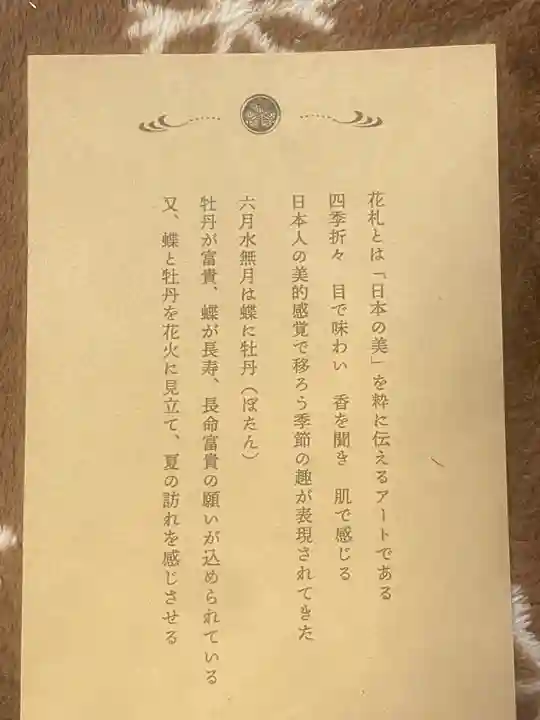 花札とは「日本の美」を粋に伝えるアートである
四季折々　目で味わい　香を聞き　肌で感じる
日本人の美的感覚で移ろう季節の趣が表現されてきた
六月水無月は蝶に牡丹（ぼたん）
牡丹が富貴、蝶が長寿、長命富貴の願いが込められている
又、蝶と牡丹を花火に見立て、夏の訪れを感じさせる